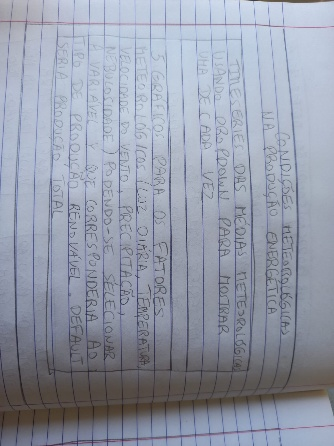 CONDIÇÕES METEOROLÓGICAS
NA PRODUÇÃO ENERGÉTICA
TIMESERIES DAS MÉDIAS METEOROLÓGICAS
USANDO DROPDOWN PARA MOSTRAR
UMA DE CADA VEZ
5 GRÁFICOS PARA OS FATORES
METEOROLÓGICOS (LUZ DIÁRIA, TEMPERATURA
VELOCIDADE DO VENTO, PRECIPITAÇÃO,
NEBULOSIDADE) PODENDO-SE SELECIONAR
A VARIAVEL Y QUE CORRESPONDERIA AO
TIPO DE PRODUÇÃO RENOVÁVEL. DEFAULT
SERIA PRODUÇÃO TOTAL